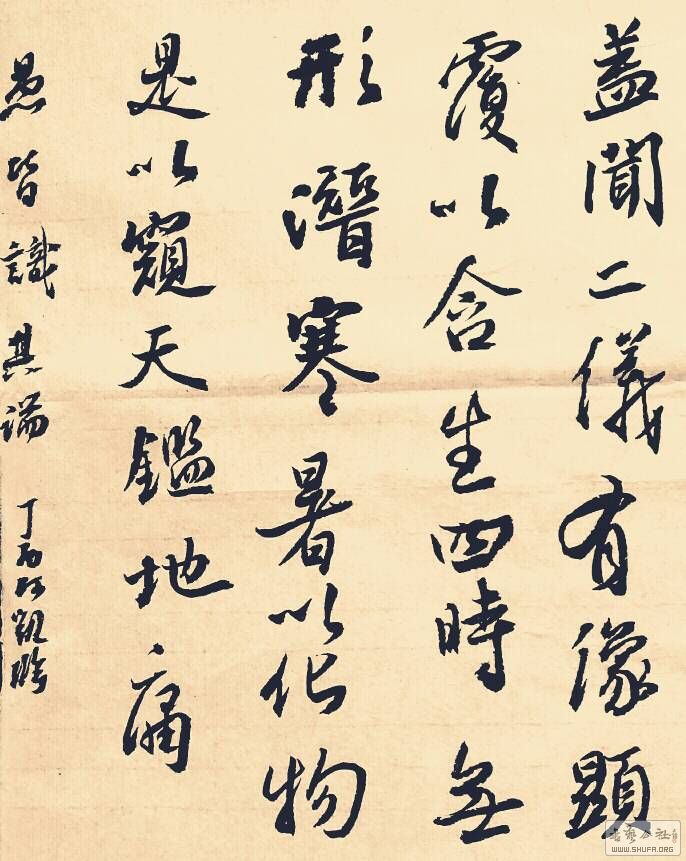 盖聞二儀有像顯
覆以含生四時無
形潛寒暑以化物
是以窺天鑑地庸
愚皆識其端
丁酉
凱
書藝公社
WWW.SHUFA.ORG